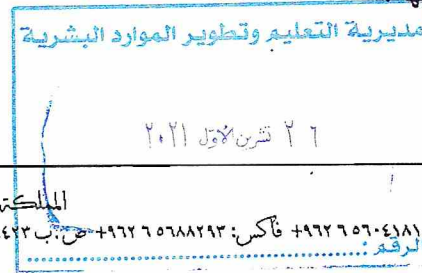 مديرية التعليم وتطوير الموارد البشرية
٢٦ تشرين الأول ٢٠٢١
المملكة
+٩٦٢ ٦ ٥٦٠٤١٨١ فاكس: ٥٦٨٨٢٩٣ ٦ ٩٦٢+ ص.ب ٤٢٣
الرقم: